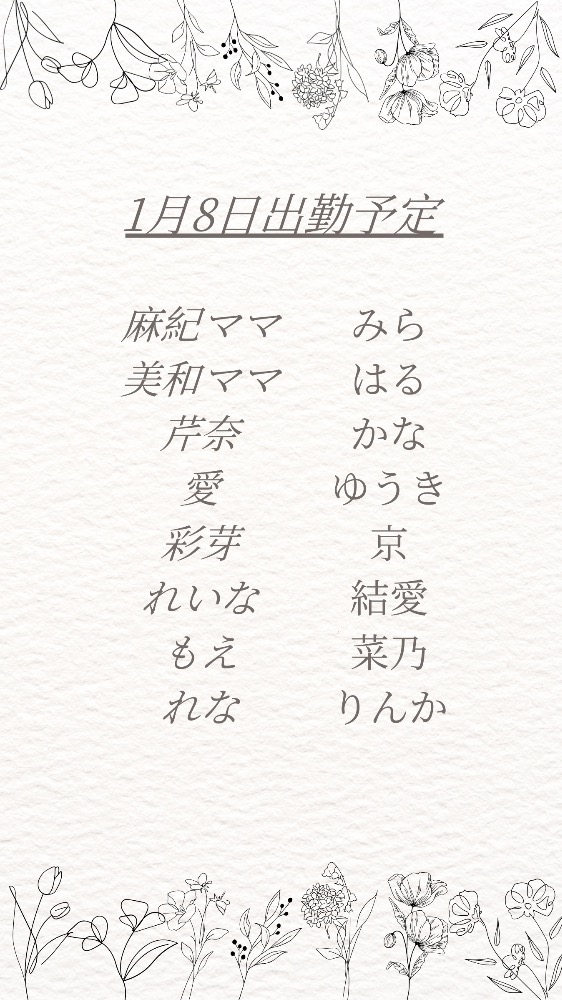 1月8日出勤予定
麻紀ママ
美和ママ
芹奈
愛
彩芽
れいな
もえ
れな
みら
はる
かな
ゆうき
京
結愛
菜乃
りんか